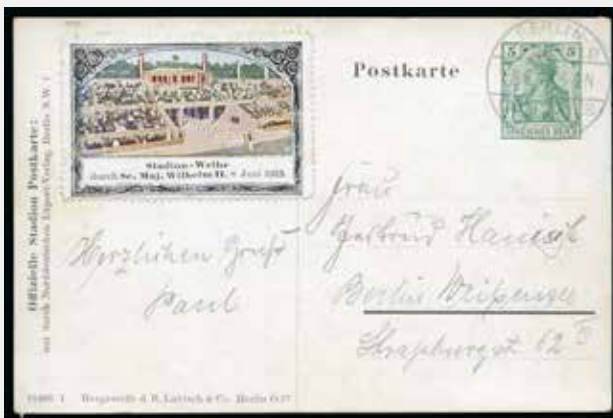 Offizielle Stadion Postkarte:
nur durch Norddeutschen Export-Verlag, Berlin N.W. 7
Stadion-Weihe
durch Se. Maj. Wilhelm II. Juni 1913
Postkarte
BERLIN
5 5
DEUTSCHES REICH
Herzlichen Gruß
Paul
Frau
Gertrud Hanisch
Berlin Weißensee
Straßburgst 62
Hergestellt d. R. Labisch & Co. Berlin